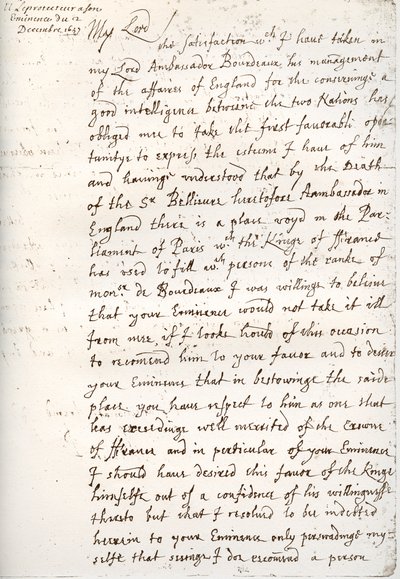 Eminence du 12
Decembre 1657
My Lord
the satisfaction wch I have taken in
my Lord Ambassador Bourdeaux his management
of the affaires of England for the conservinge a
good intelligence betweene the two Nations has
obliged mee to take the first favorable opor
tunitye to express the esteeme I have of him
and havinge understood that by the Death
of the Sr Bellievre heretofore Aambassador in
England there is a place voyd in the Par-
liament of Paris wch the Kinge of ffrance
has used to fill wth persons of the ranke of
monsr de Bourdeaux I was willinge to believe
that your Eminence would not take it ill
from mee, if I tooke hould of this occasion
to recomend him to your favor and to desier
your Eminence that in bestowinge the saide
place you have respect to him as one that
has exceedinge well merited of the Crowne
of ffrance and in perticular of your Eminence
I should have desired this favor of the Kinge
himselfe out of a confidence of his willingnesse
thereto but that I resolved to be indebted
herein to your Eminence only perswadinge my-
selfe that seeinge I doe recomend a person